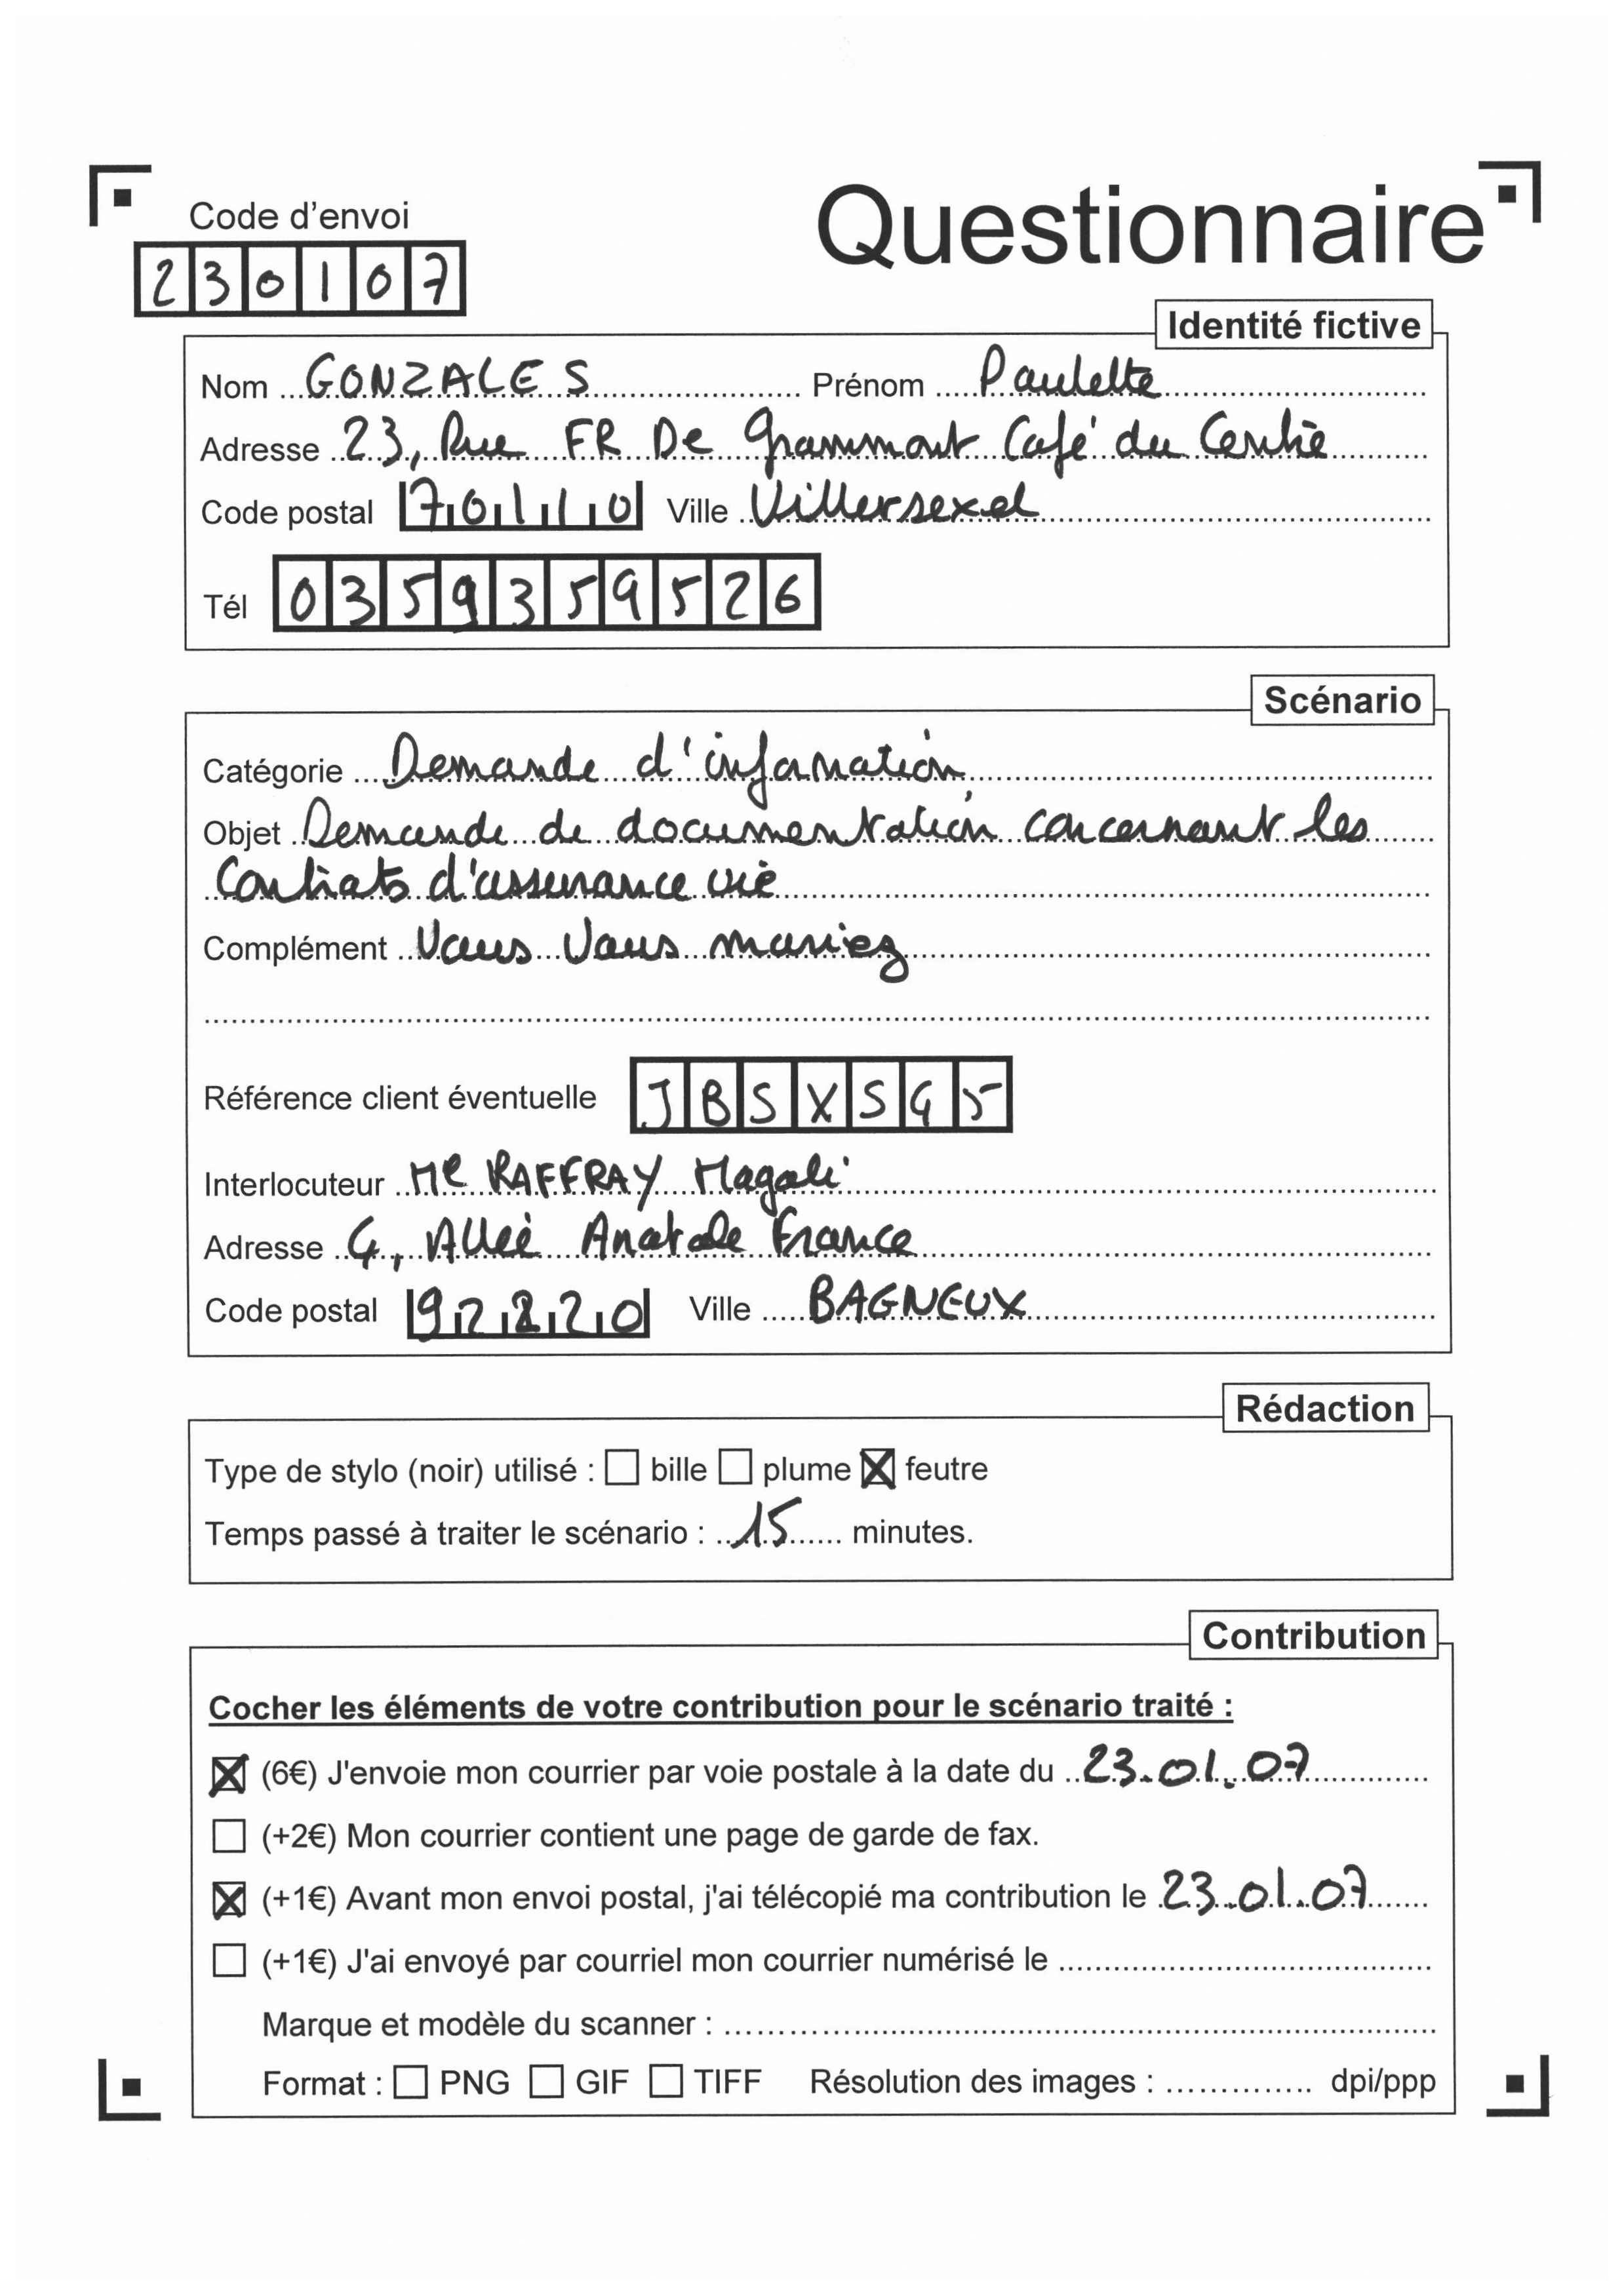 Code d'envoi
Questionnaire
230107
Identité fictive
Nom GONZALES Prénom Paulette
Adresse 23, Rue FR De Grammont Café du Centre
Code postal 70110 Ville Villersexel
Tél 0359359526
Scénario
Catégorie Demande d'information
Objet Demande de documentation concernant les
Contrats d'assurance vie
Complément Vous Vous mariez
Référence client éventuelle JBSXSG5
Interlocuteur Me RAFFRAY Magali
Adresse 4, Allée Anatole France
Code postal 92220 Ville BAGNEUX
Rédaction
Type de stylo (noir) utilisé : bille plume feutre
Temps passé à traiter le scénario : 15 minutes.
Contribution
Cocher les éléments de votre contribution pour le scénario traité :
(6€) J'envoie mon courrier par voie postale à la date du 23.01.07
(+2€) Mon courrier contient une page de garde de fax.
(+1€) Avant mon envoi postal, j'ai télécopié ma contribution le 23.01.07
(+1€) J'ai envoyé par courriel mon courrier numérisé le
Marque et modèle du scanner :
Format : PNG GIF TIFF Résolution des images : dpi/ppp